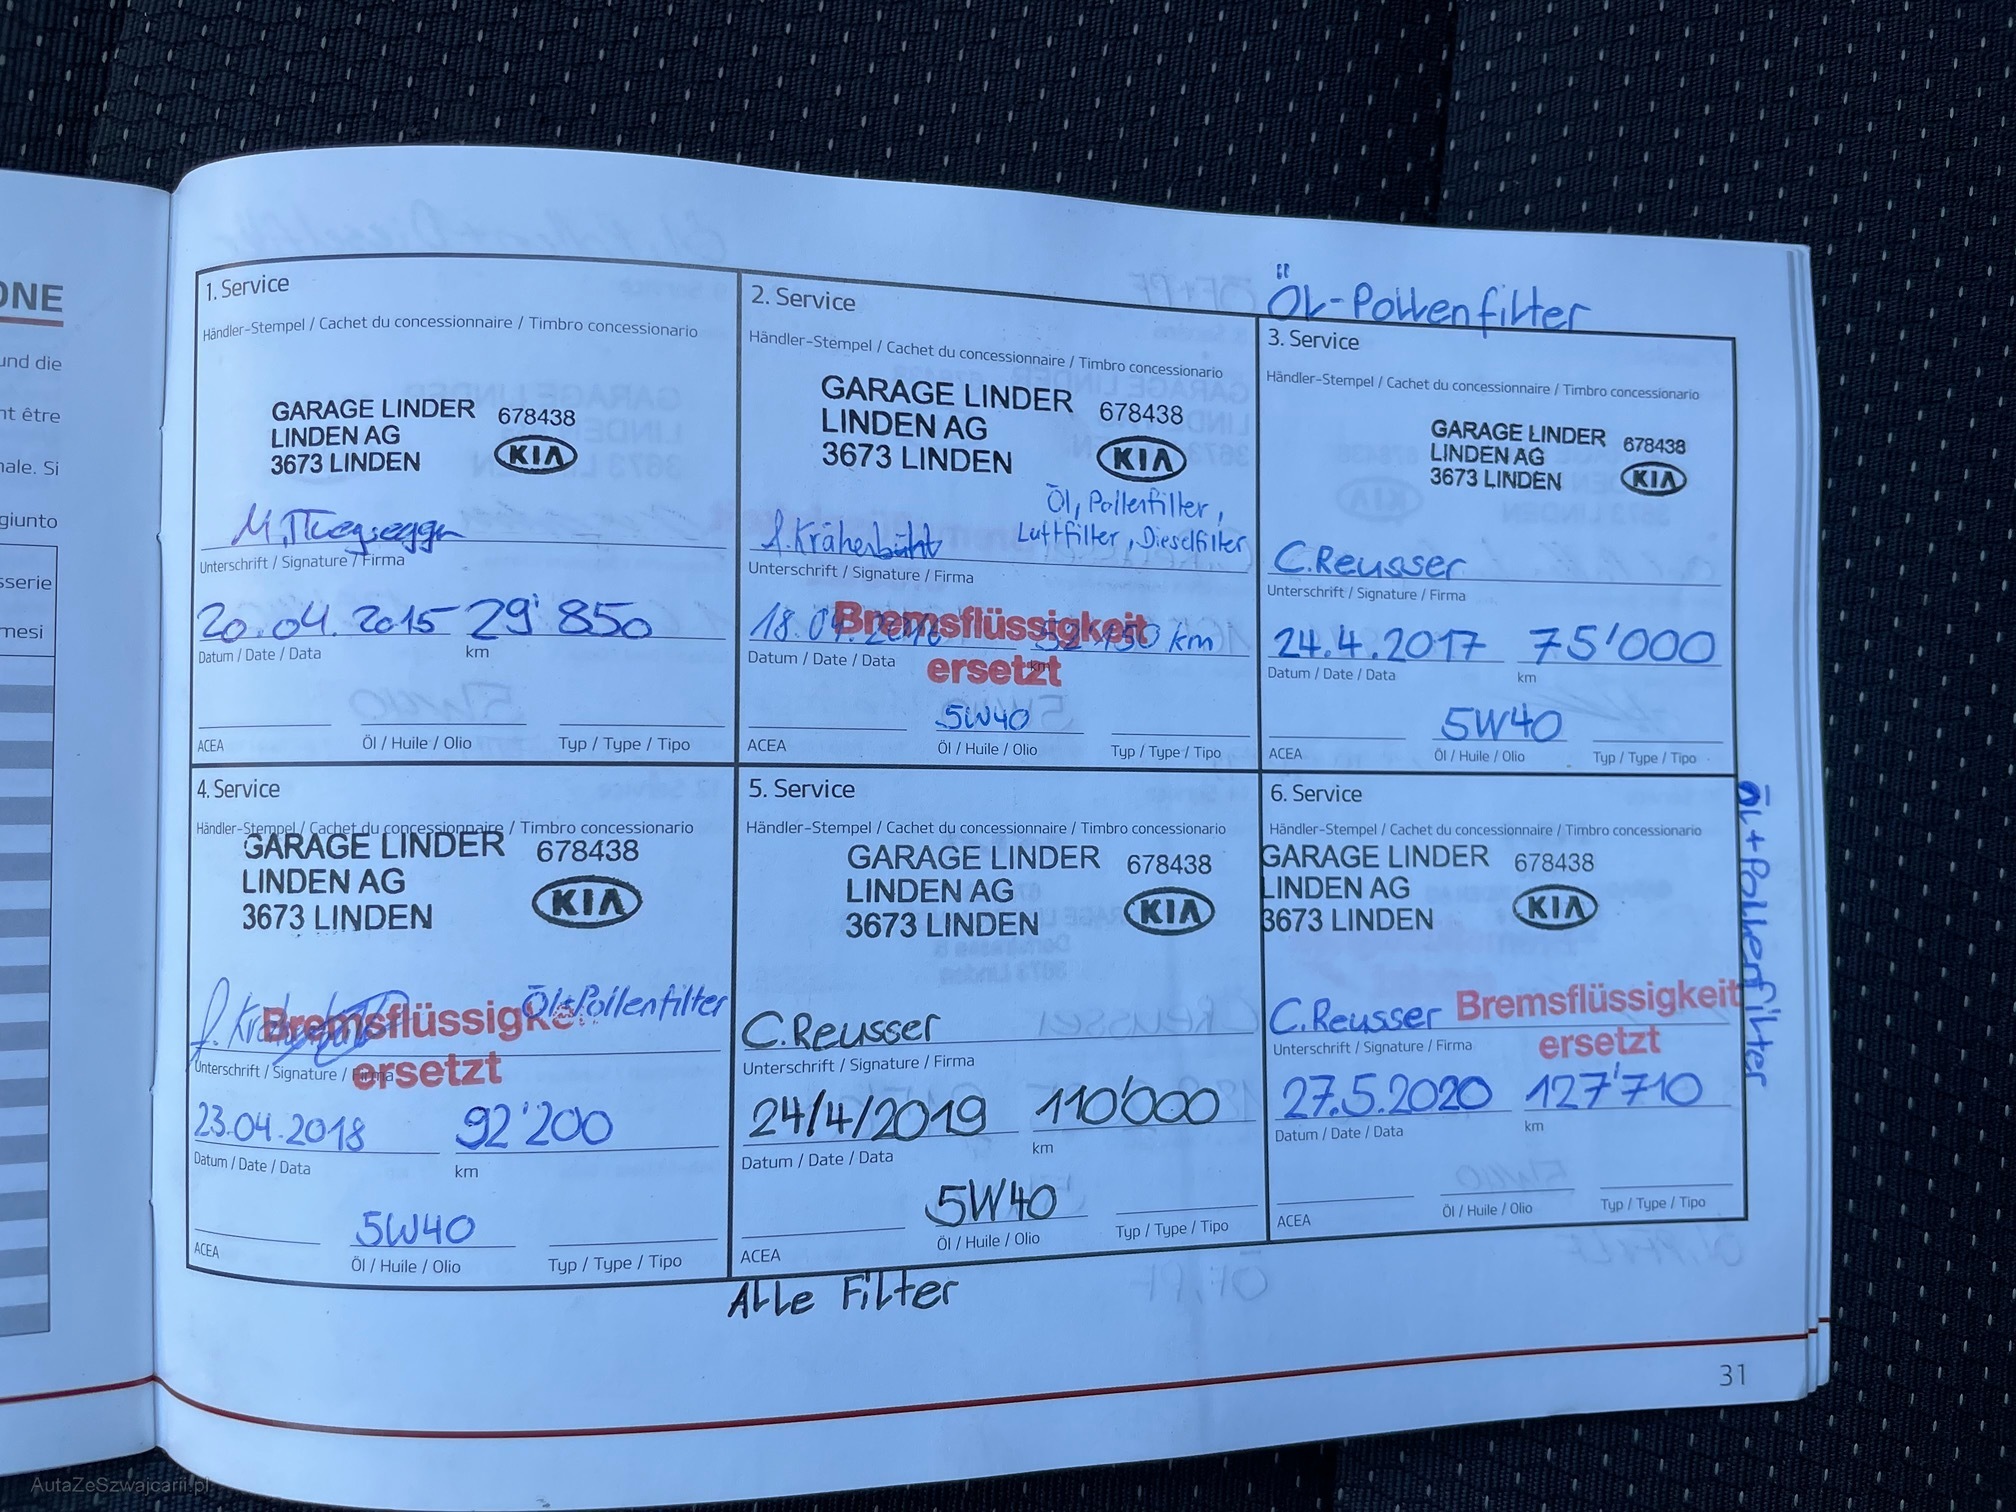 ONE
und die
nt être
nale. Si
giunto
sserie
mesi
1. Service
Händler-Stempel / Cachet du concessionnaire / Timbro concessionario
GARAGE LINDER 678438
LINDEN AG
3673 LINDEN KIA
Unterschrift / Signature / Firma
20.04.2015 29'850
Datum / Date / Data km
ACEA Öl / Huile / Olio Typ / Type / Tipo
2. Service
Händler-Stempel / Cachet du concessionnaire / Timbro concessionario
GARAGE LINDER 678438
LINDEN AG
3673 LINDEN KIA
Öl, Pollenfilter,
Luftfilter, Dieselfilter
Unterschrift / Signature / Firma
Bremsflüssigkeit
km
Datum / Date / Data km
ersetzt
5W40
ACEA Öl / Huile / Olio Typ / Type / Tipo
Öl-Pollenfilter
3. Service
Händler-Stempel / Cachet du concessionnaire / Timbro concessionario
GARAGE LINDER 678438
LINDEN AG
3673 LINDEN KIA
C.Reusser
Unterschrift / Signature / Firma
24.4.2017 75'000
Datum / Date / Data km
5W40
ACEA Öl / Huile / Olio Typ / Type / Tipo
4. Service
Händler-Stempel / Cachet du concessionnaire / Timbro concessionario
GARAGE LINDER 678438
LINDEN AG
3673 LINDEN KIA
Öl+Pollenfilter
Bremsflüssigke
Unterschrift / Signature / Firma
ersetzt
23.04.2018 92'200
Datum / Date / Data km
5W40
ACEA Öl / Huile / Olio Typ / Type / Tipo
5. Service
Händler-Stempel / Cachet du concessionnaire / Timbro concessionario
GARAGE LINDER 678438
LINDEN AG
3673 LINDEN KIA
C.Reusser
Unterschrift / Signature / Firma
24/4/2019 110'000
Datum / Date / Data km
5W40
ACEA Öl / Huile / Olio Typ / Type / Tipo
Alle Filter
6. Service
Händler-Stempel / Cachet du concessionnaire / Timbro concessionario
GARAGE LINDER 678438
LINDEN AG
3673 LINDEN KIA
C.Reusser Bremsflüssigkeit
Unterschrift / Signature / Firma ersetzt
27.5.2020 127'710
Datum / Date / Data km
ACEA Öl / Huile / Olio Typ / Type / Tipo
Öl+Pollenfilter
31
AutaZeSzwajcarii.pl